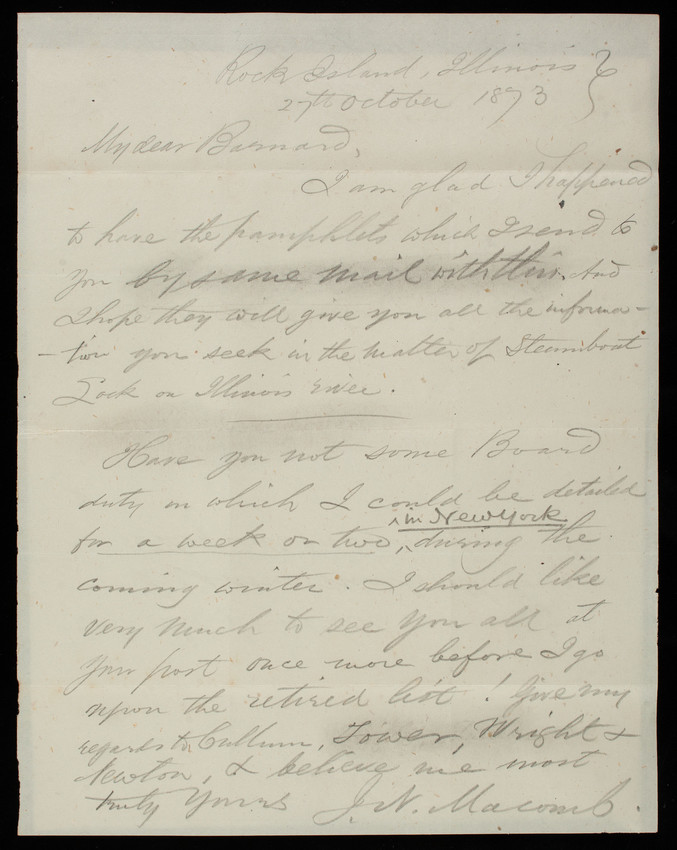 Rock Island, Illinois
27th October 1873
My dear Barnard,
I am glad I happened
to have the pamphlets which I send to
you by same mail with this. And
I hope they will give you all the informa-
-tion you seek in the matter of Steamboat
Lock on Illinois river.
Have you not some Board
duty on which I could be detailed
for a week or two, in New York during the
coming winter. I should like
very much to see you all at
your post once more before I go
upon the retired list! Give my
regards to Cullum, Tower, Wright &
Newton, & believe me most
truly Yours J. N. Macomb.